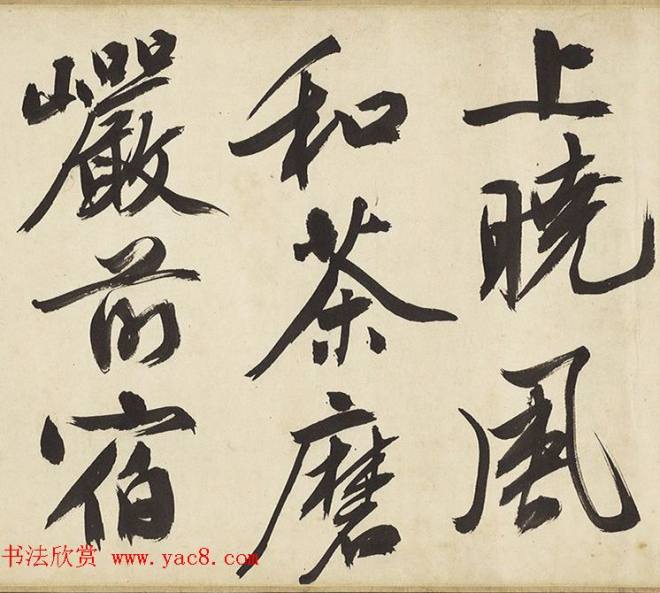 上曉風
和茶磨
巖前宿
书法欣赏 www.yac8.com